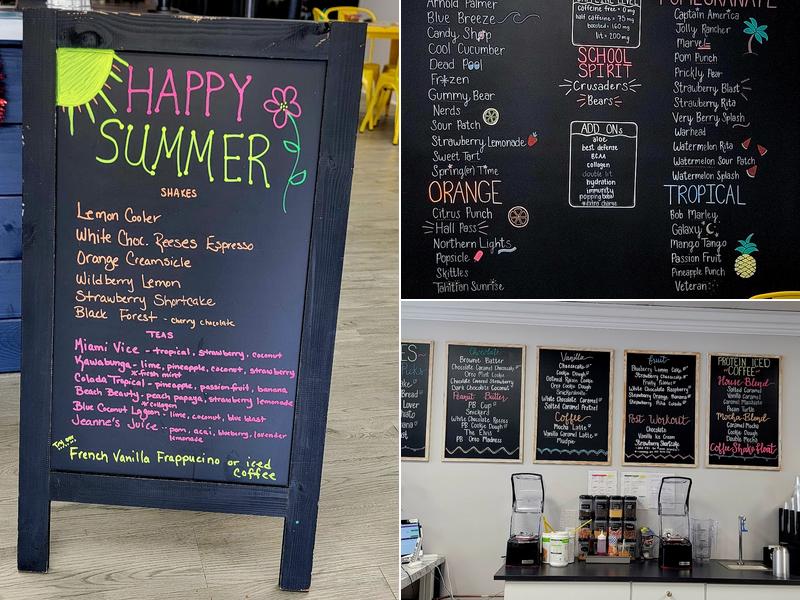 HAPPY
SUMMER
SHAKES
Lemon Cooler
White Choc. Reeses Espresso
Orange Creamsicle
Wildberry Lemon
Strawberry Shortcake
Black Forest - cherry chocolate
TEAS
Miami Vice - tropical, strawberry, coconut
Kawabunga - lime, pineapple, coconut, strawberry
* fresh mint
Colada Tropical - pineapple, passion fruit, banana
Beach Beauty - peach papaya, strawberry lemonade
* collagen
Blue Coconut Lagoon - lime, coconut, blue blast
Jeanne's Juice - pom, acai, blueberry, lavender
lemonade
French Vanilla Frappucino or iced
Coffee
Arnold Palmer
Blue Breeze
Candy Shop
Cool Cucumber
Dead Pool
Frozen
Gummy Bear
Nerds
Sour Patch
Strawberry Lemonade
Sweet Tart
Spring(er) Time
ORANGE
Citrus Punch
Hall Pass
Northern Lights
Popsicle
Skittles
Tahitian Sunrise
caffeine free = 0 mg
half caffeine = 75 mg
boosted = 160 mg
lit = 200 mg
SCHOOL
SPIRIT
Crusaders
Bears
ADD ONs
aloe
best defense
BCAA
collagen
double lit
hydration
immunity
popping boba
*extra charge
POMEGRANATE
Captain America
Jolly Rancher
Marvel
Pom Punch
Prickly Pear
Strawberry Blast
Strawberry Rita
Very Berry Splash
Warhead
Watermelon Rita
Watermelon Sour Patch
Watermelon Splash
TROPICAL
Bob Marley
Galaxy
Mango Tango
Passion Fruit
Pineapple Punch
Veteran
Chocolate
Brownie Batter
Chocolate Caramel Cheesecake
Oreo Mint Cake
Chocolate Covered Strawberry
Dark Chocolate Coconut
Peanut Butter
PB Cup
Snickers
White Chocolate Reeses
PB Cookie Dough
The Elvis
PB Oreo Madness
Vanilla
Cheesecake
Cookie Dough
Oatmeal Raisin Cookie
Oreo Cookie Dough
Snickerdoodle
White Chocolate Caramel
Salted Caramel Pretzel
Coffee
Mocha Latte
Vanilla Caramel Latte
Fruit
Blueberry Lemon Cake
Strawberry Cheesecake
Fruity Pebbles
White Chocolate Raspberry
Strawberry Orange Banana
Strawberry Piña Colada
Post Workout
Chocolate
Vanilla Ice Cream
Strawberry Shortcake
PROTEIN ICED
COFFEE
House Blend
Salted Caramel
Vanilla Caramel
Caramel Macchiato
Pecan Turtle
Mocha Blend
Mocha Caramel
Cookie Dough
Double Mocha
Coffee Shake Float